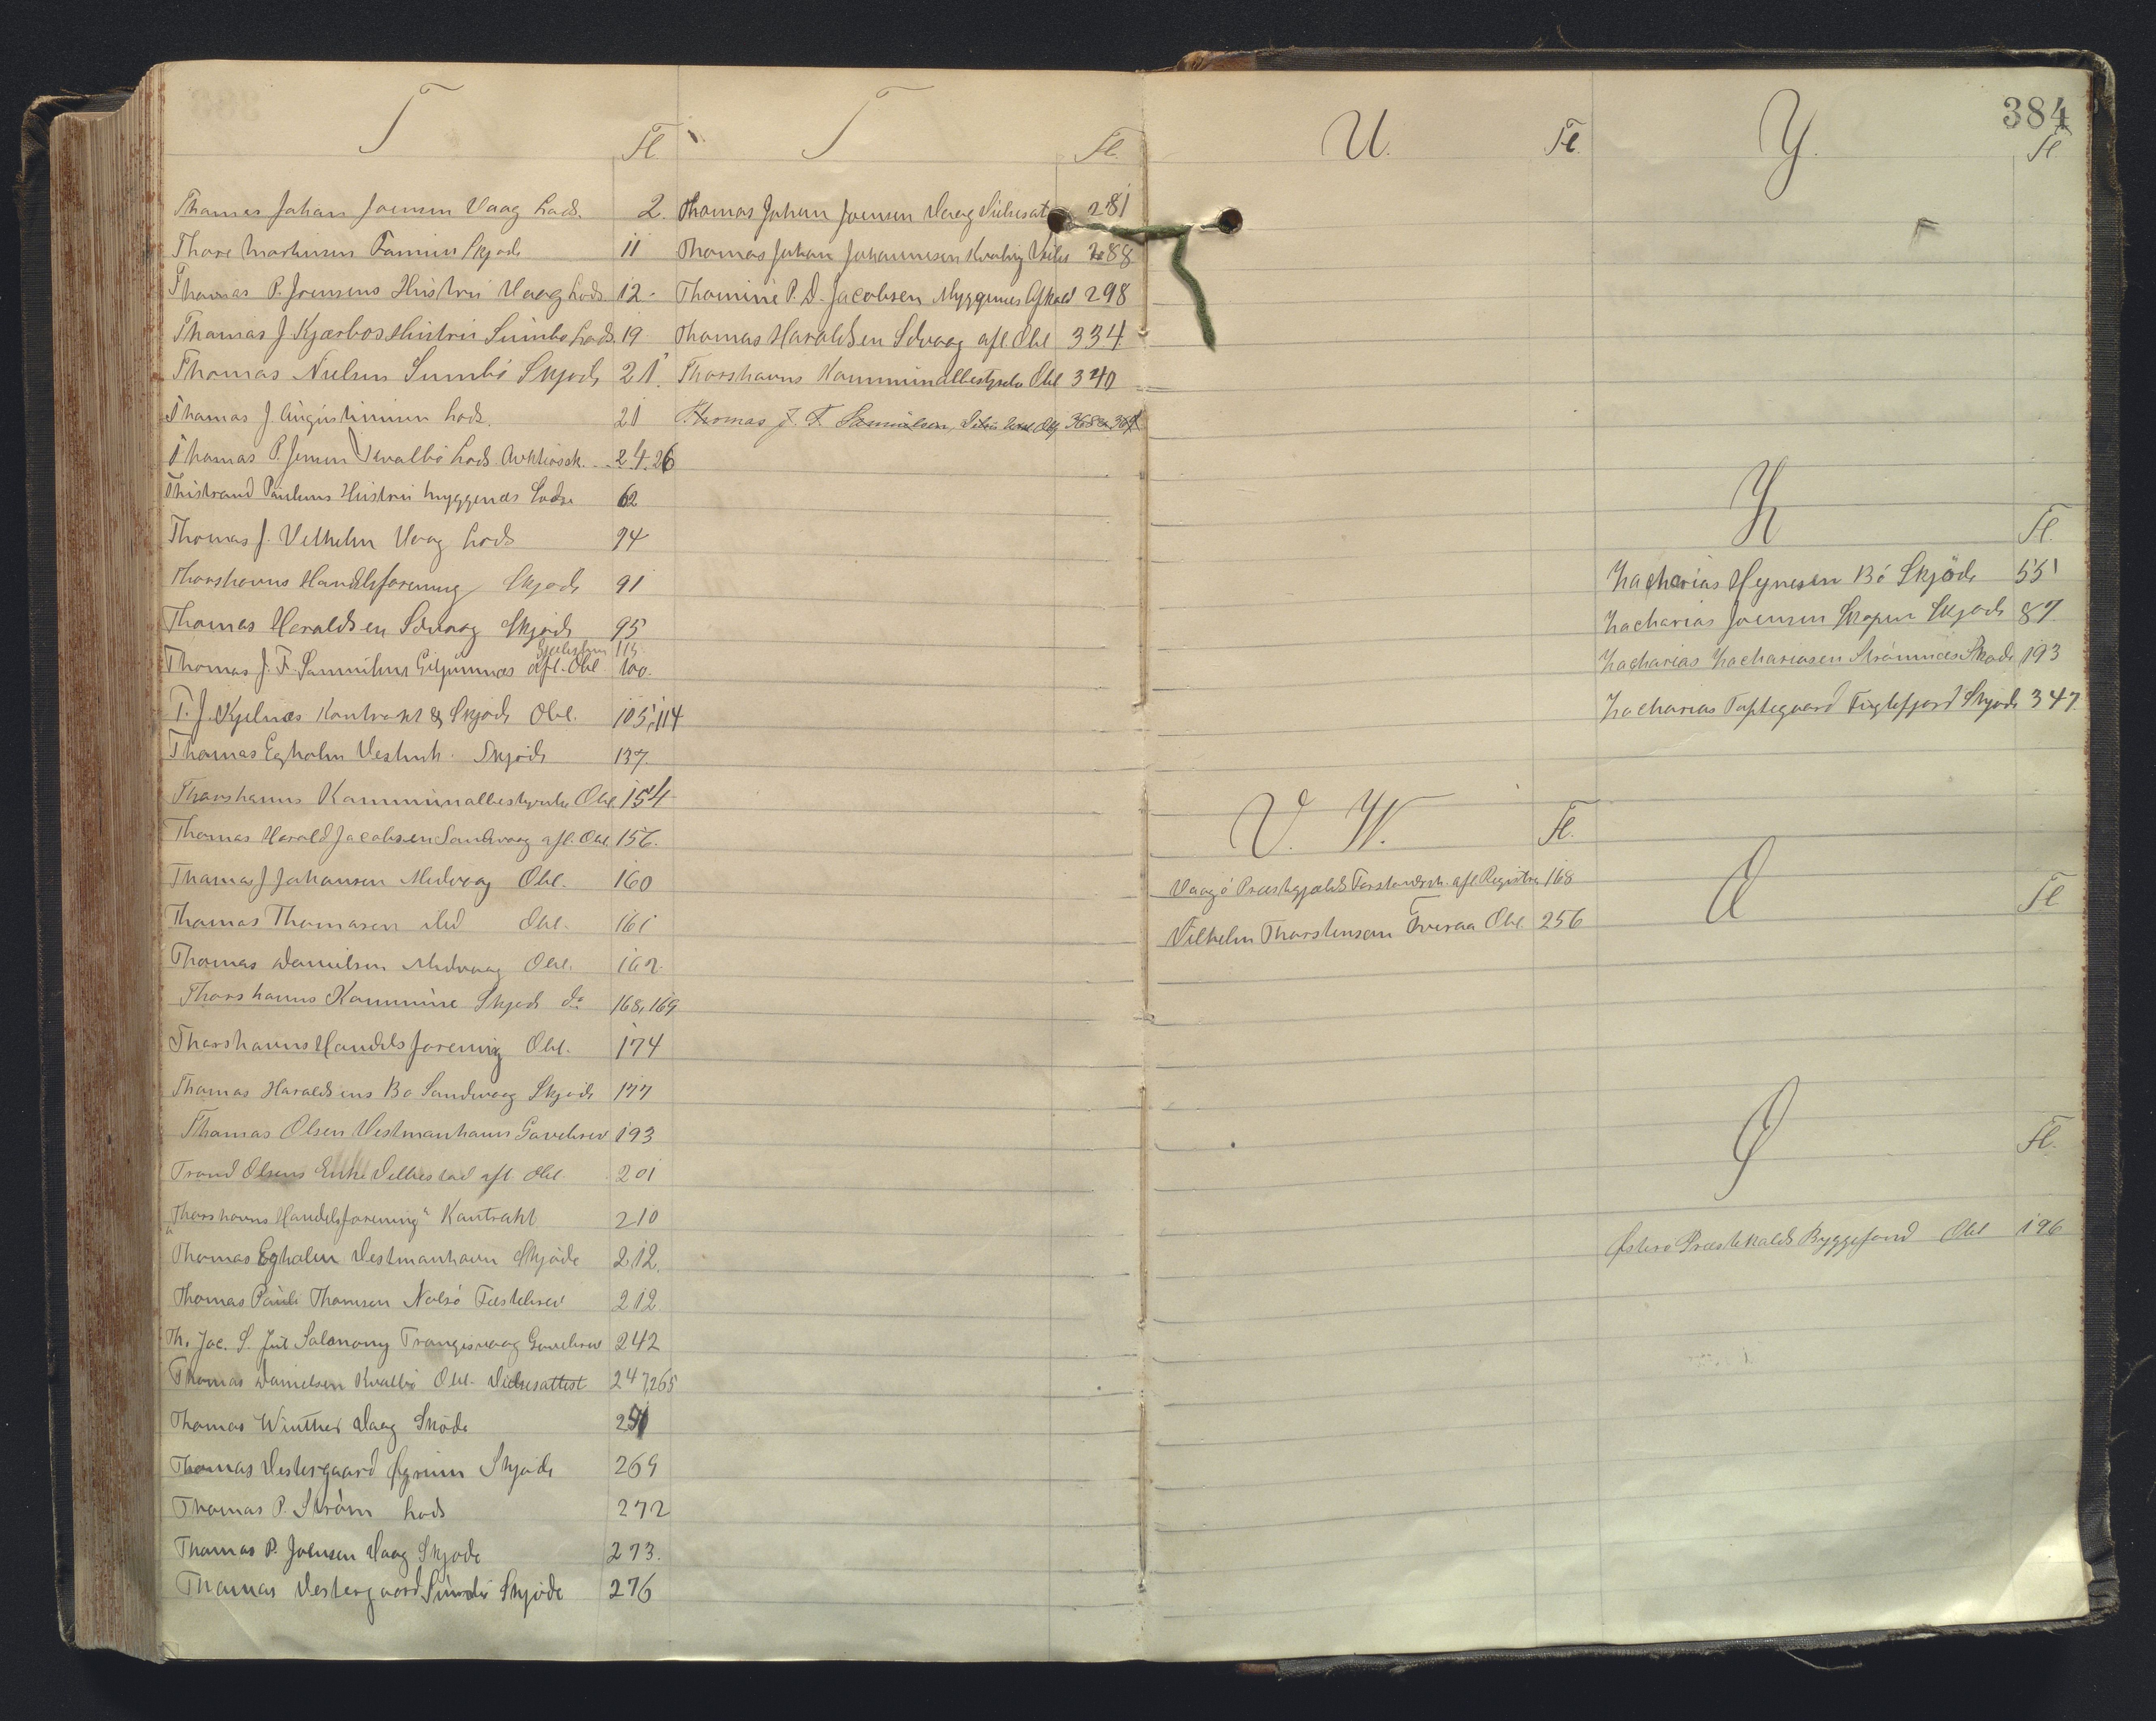 T
Fl.
Thomas Johan Joensen Vaag Lods. 2.
Thore Martinsen Famien Skjøde 11
Thomas P. Joensens Hustru Vaag Lods 12
Thomas J. Kjærbos Hustru Sumbø Lods. 19
Thomas Nielsen Sumbö Skjöde 21.
Thomas J Augustinusen Lods. 21
Thomas P. Jensen Lods Auktiossk. 24.26
Thistrand Poulsens Hustru Myggenæs Lods 62
Thomas J. Vilhelm Vaag Lods 94
Thorshavns Handelsforening Skjøde 91
Thomas Haraldsen Sdvaag Skjøde 95
113.
Thomas J. F. Samuelsen afl. Obl 100.
T. J. Kjelnæs Kontrakt & Skjøde Obl. 105, 114
Thomas Egholm Vestmh. Skjøde 137.
Thorshavns Kommunalbestyrelse Obl. 154
Thomas Harald Jacobsen Sandvaag afl. Obl. 156.
Thomas J Johansen Midvaag Obl. 160
Thomas Thomasen ibd Obl. 161
Thomas Danielsen Midvaag Obl. 162.
Thorshavns Kommune Skjøde do 168, 169
Thorshavns Handelsforening Obl. 174
Thomas Haraldsens Bo Sandvaag Skjøde 177
Thomas Olsen Vestmanhavn Gavebrev 193
Trond Olsens Enke Velbestad afl. Obl. 201
"Thorshavns Handelsforening" Kontrakt 210
Thomas Egholm Vestmanhavn Skjøde 212.
Thomas Pauli Thomsen Nolsö Fæstebrev 212
Th. Jac. S. Jul Salomony Trangisvaag Gavebrev 242
Thomas Danielsen Kvalbø Obl. Vielsesattest 247,265
Thomas Winther Vaag Skøde
Thomas Vestergaard Øgrim Skjøde 269
Thomas P. Strøm Lods 272
Thomas P. Joensen Vaag Skjøde 273.
Thomas Vestergaard Sumbø Skjøde 276
T
Fl.
Thomas Johan Joensen Vaag Vielsesat 281
Thomas Johan Johannesen Kvalbø Vielse 288
Thomine P. D. Jacobsen Myggenæs Afkald 298
Thomas Haraldsen Sdvaag afl. Obl 334
Thorshavns Kommunalbestyrelse Obl 340
Thomas J. F. Samuelsen, Obl. 368
U.
Fl.
V. W.
Fl.
Vaagø Præstegjælds Forstandersk. afl Registra 168
Vilhelm Thorstensen Tveraa Obl. 256
384
Y.
Fl
Z
Fl.
Zacharias Heynesen Bö Skjöde 55
Zacharias Joensen Skopen Skjøde 87
Zacharias Zachariasen Strømnæs Skøde 193
Zacharias Toftegaard Fuglefjord Skjøde 347
Æ
Fl
Ø
Fl.
Østerø Præstekalds Byggefond Obl 196